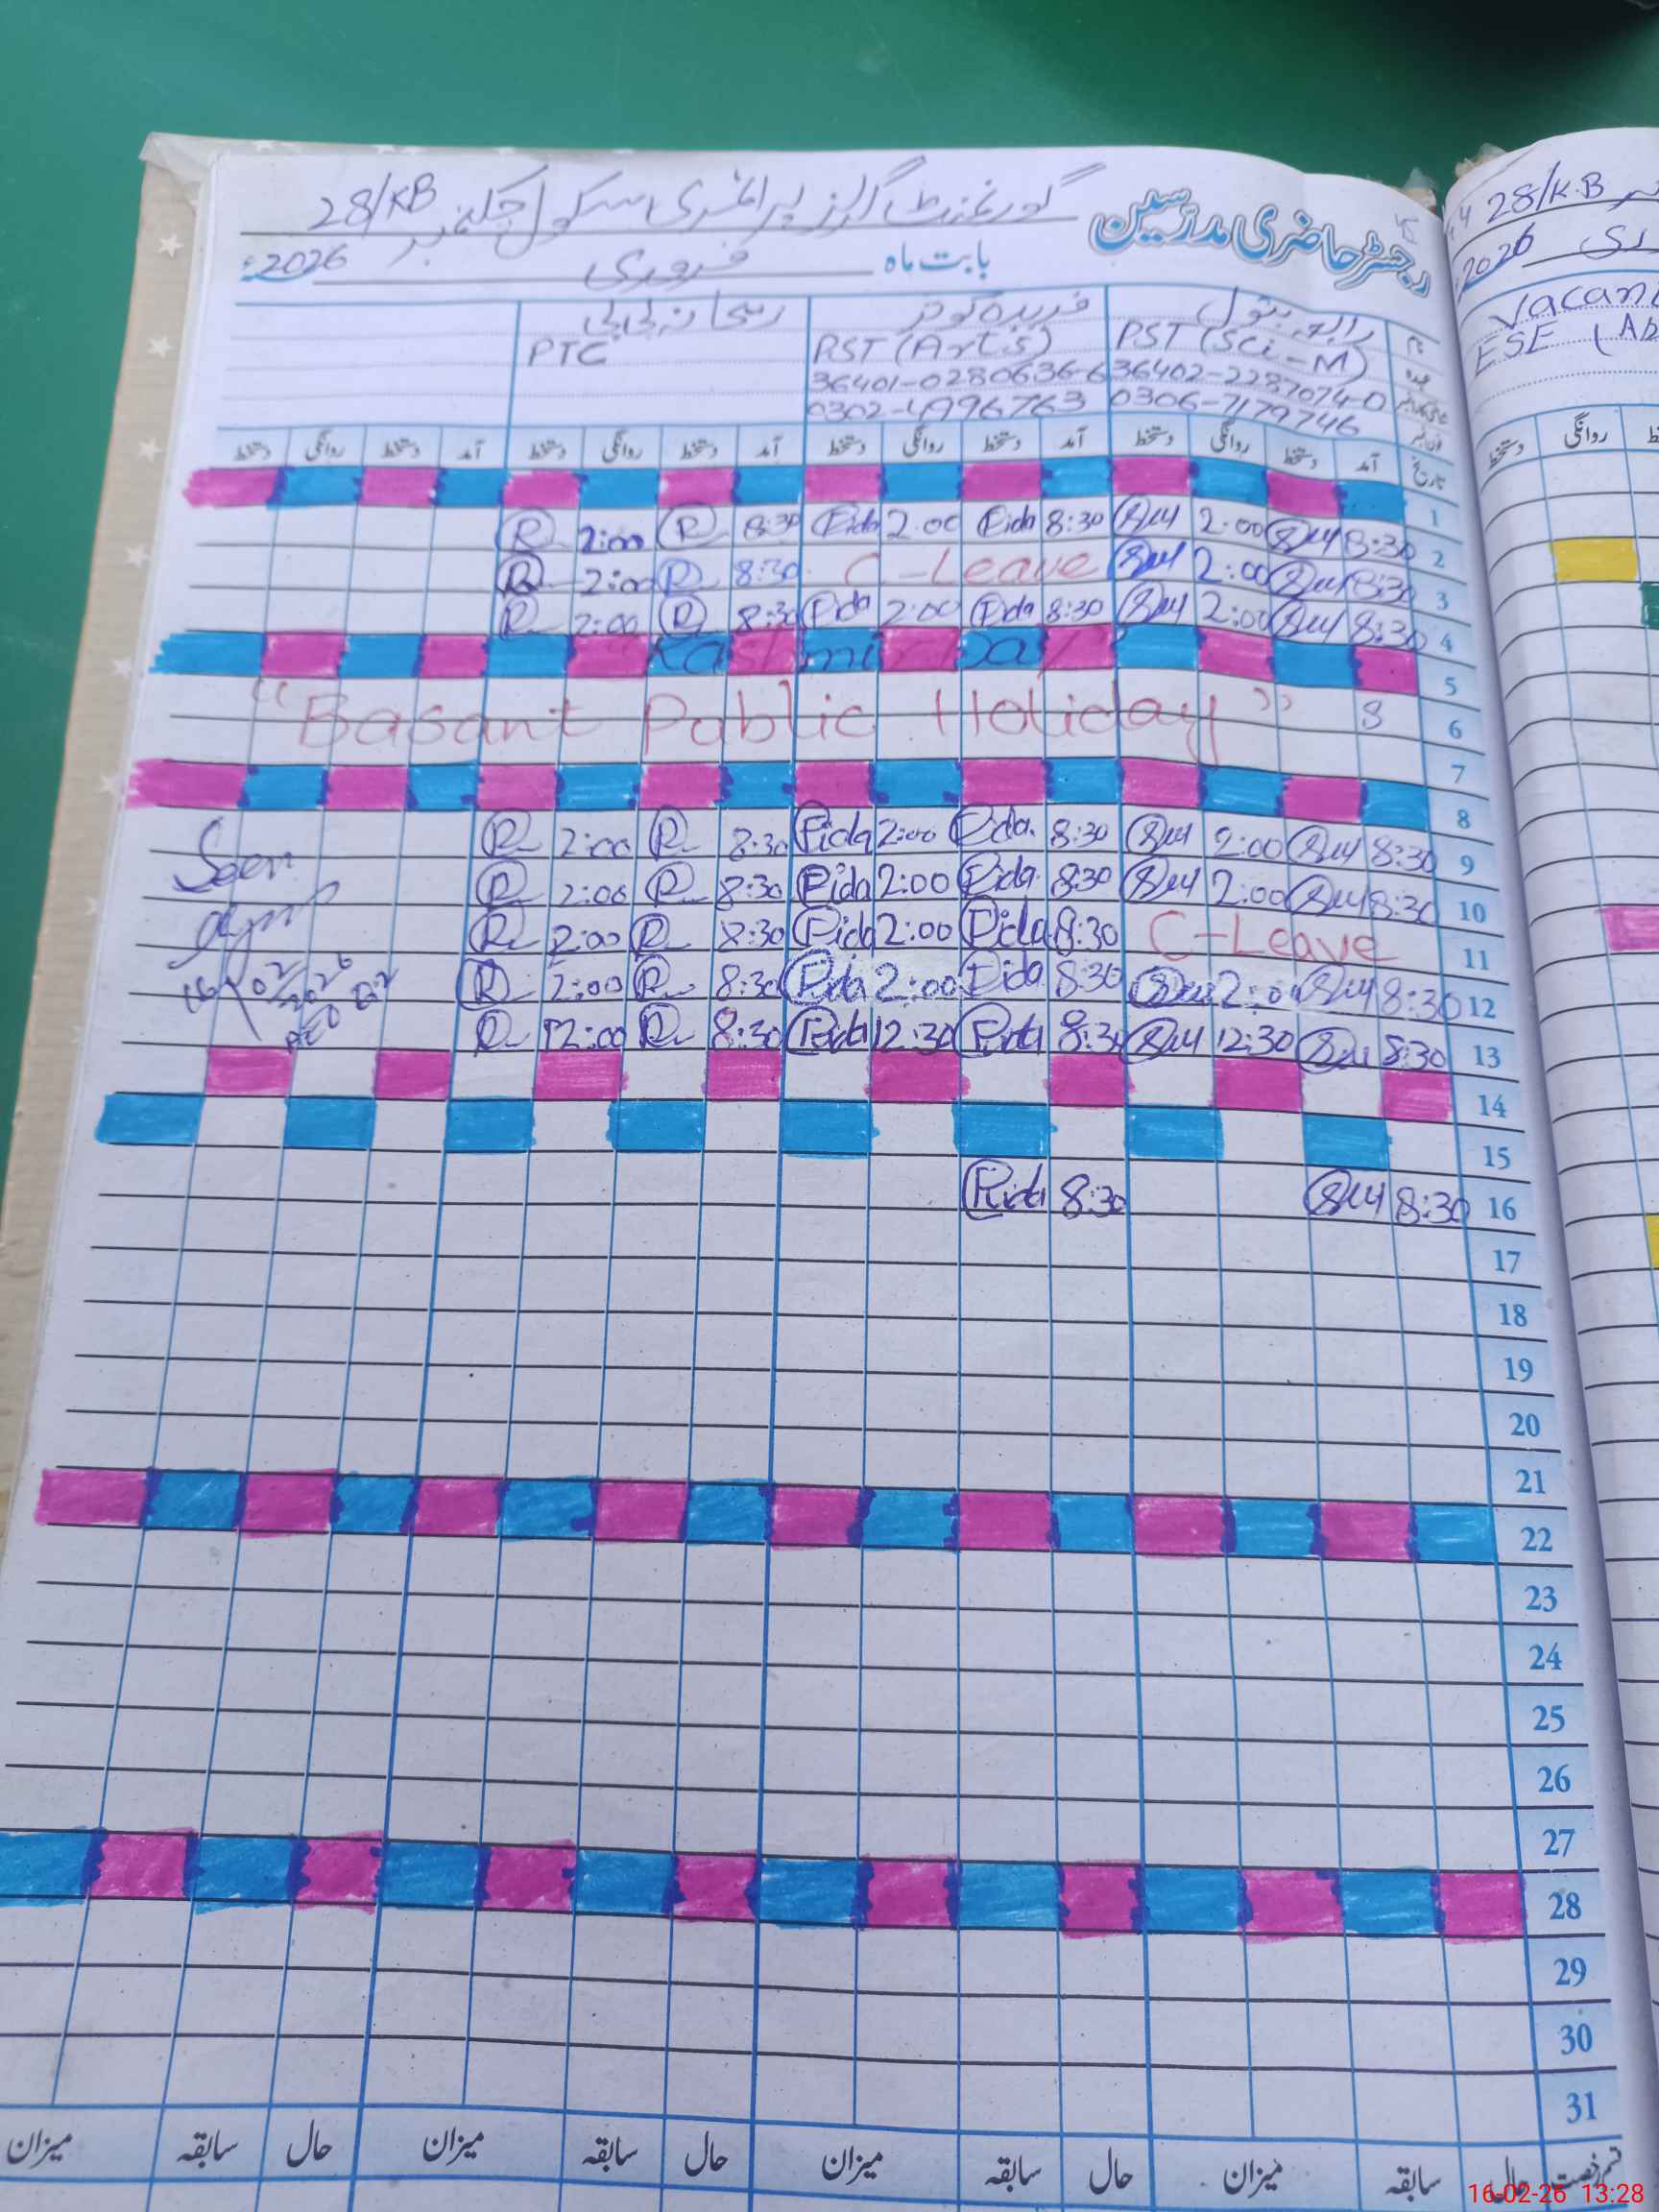 رجسٹر حاضری مدرسین گورنمنٹ گرلز پرائمری سکول چک نمبر 28/KB
بابت ماہ فروری 2026ء
نام رابعہ بتول فریدہ کوثر ریحانہ بی بی
عہدہ PST (Sci-M) PST (Arts) PTC
36402-2287074-0 36401-0280636-6
0306-7179746 0302-4996763
تاریخ آمد دستخط روانگی دستخط آمد دستخط روانگی دستخط آمد دستخط روانگی دستخط آمد دستخط روانگی دستخط
1
2 8:30 2:00 8:30 Fida 2:00 Fida 8:30 R 2:00 R
3 8:30 2:00 C-Leave 8:30 R 2:00 R
4 8:30 2:00 8:30 Fida 2:00 Fida 8:30 R 2:00 R
5 "Kashmir Day"
6 "Basant Public Holiday"
7
8
9 8:30 2:00 8:30 Fida 2:00 Fida 8:30 R 2:00 R
10 8:30 2:00 8:30 Fida 2:00 Fida 8:30 R 2:00 R
11 C-Leave 8:30 Fida 2:00 Fida 8:30 R 2:00 R
12 8:30 2:00 8:30 Fida 2:00 Fida 8:30 R 2:00 R
13 8:30 12:30 8:30 Fida 12:30 Fida 8:30 R 12:00 R
Seen
16/02/2026
AEO
14
15
16 8:30 8:30 Fida
17
18
19
20
21
22
23
24
25
26
27
28
29
30
31
قسم رخصت حال سابقہ میزان حال سابقہ میزان حال سابقہ میزان حال سابقہ میزان
28/K.B
2026
Vacant
ESE
روانگی دستخط
16-02-26 13:28